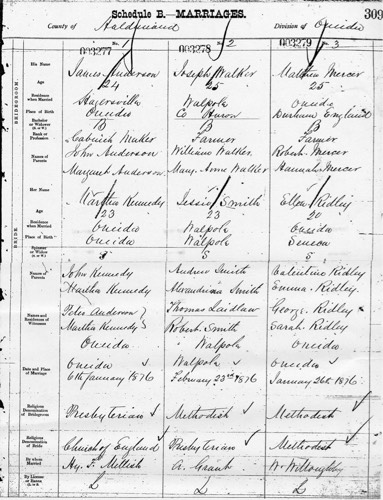 Schedule B.—MARRIAGES. 309
County of Haldimand Division of Oneida
003277 No. 1 003278 2 003279 3
BRIDEGROOM.
His Name James Anderson Joseph Walker Matthew Mercer
Age 24 25 25
Residence when Married Hagersville Walpole Oneida
Place of Birth Oneida Co Huron Durham England
Bachelor or Widower (B. or W.) B B B
Rank or Profession Cabinet Maker Farmer Farmer
Names of Parents John Anderson William Walker Robert Mercer
Margaret Anderson Mary Anne Walker Hannah Mercer
BRIDE.
Her Name Martha Kennedy Jessie Smith Ellen Ridley
Age 23 23 20
Residence when Married Oneida Walpole Oneida
Place of Birth Oneida Walpole Seneca
Spinster or Widow (S. or W.) S S S
Names of Parents John Kennedy Andrew Smith Valentine Ridley
Martha Kennedy Alexandrina Smith Emma Ridley
Names and Residences of Witnesses Anderson Thomas Laidlaw George Ridley
Martha Kennedy Robert Smith Sarah Ridley
Oneida Walpole Oneida
Date and Place of Marriage Oneida Walpole Oneida
6th January 1876 February 23rd 1876 January 26th 1876
Religious Denomination of Bridegroom Presbyterian Methodist Methodist
Religious Denomination of Bride Church of England Presbyterian Methodist
By whom Married Hy. F. Mellish A. Grant W. Willoughby
By License or Banns (L. or B.) L L L